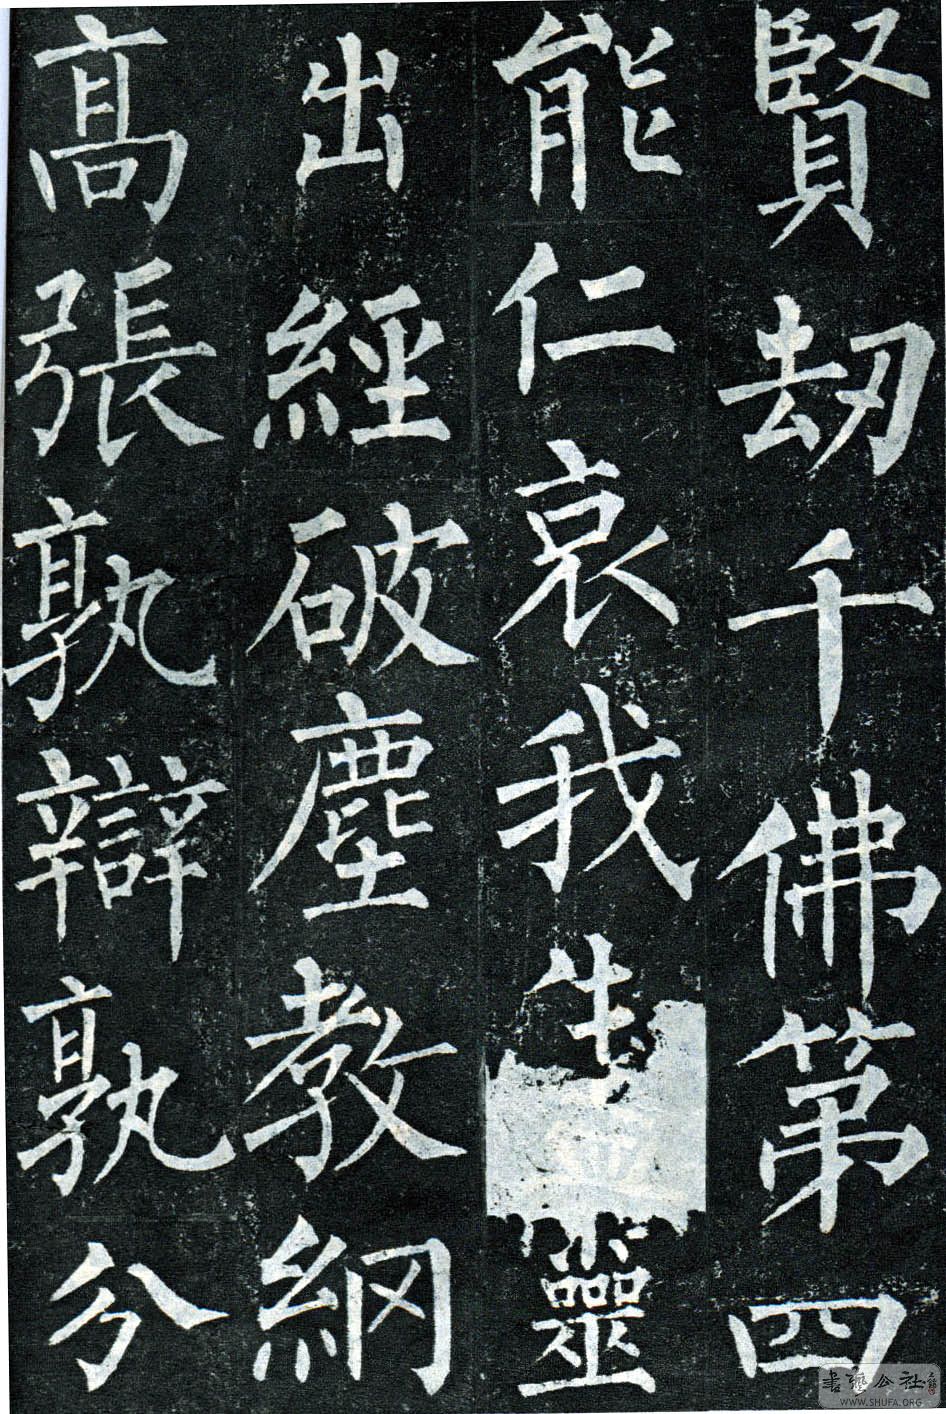 賢劫千佛第四
能仁哀我生靈
出經破塵教網
高張孰辯孰分
書藝公社
WWW.SHUFA.ORG